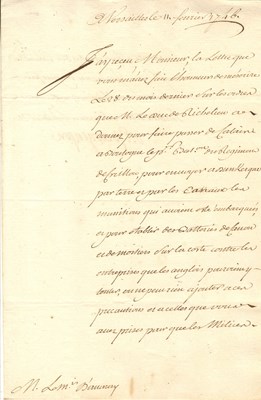 A Versailles le 11 fevrier 1746.
J'ay reçeu Monsieur, la Lettre que
vous m'avez fait l'honneur de m'écrire
le 28 du mois dernier sur les ordres
que M. Le duc de Richelieu a
donnez pour faire passer de Calais
a Boulogne le p.er Bat.on du Regiment
de Crillon, pour envoyer a Dunkerque
par terre et par les Canaux les
munitions qui avoient eté embarquées
et pour etablir des Batteries de Canon
et de mortiers sur la coste contre les
entreprises que les anglois pourroient y
tenter, on ne peut rien ajouter a ces
precautions et a celles que vous
aurez prises pour que les Milices
M. Le M.is